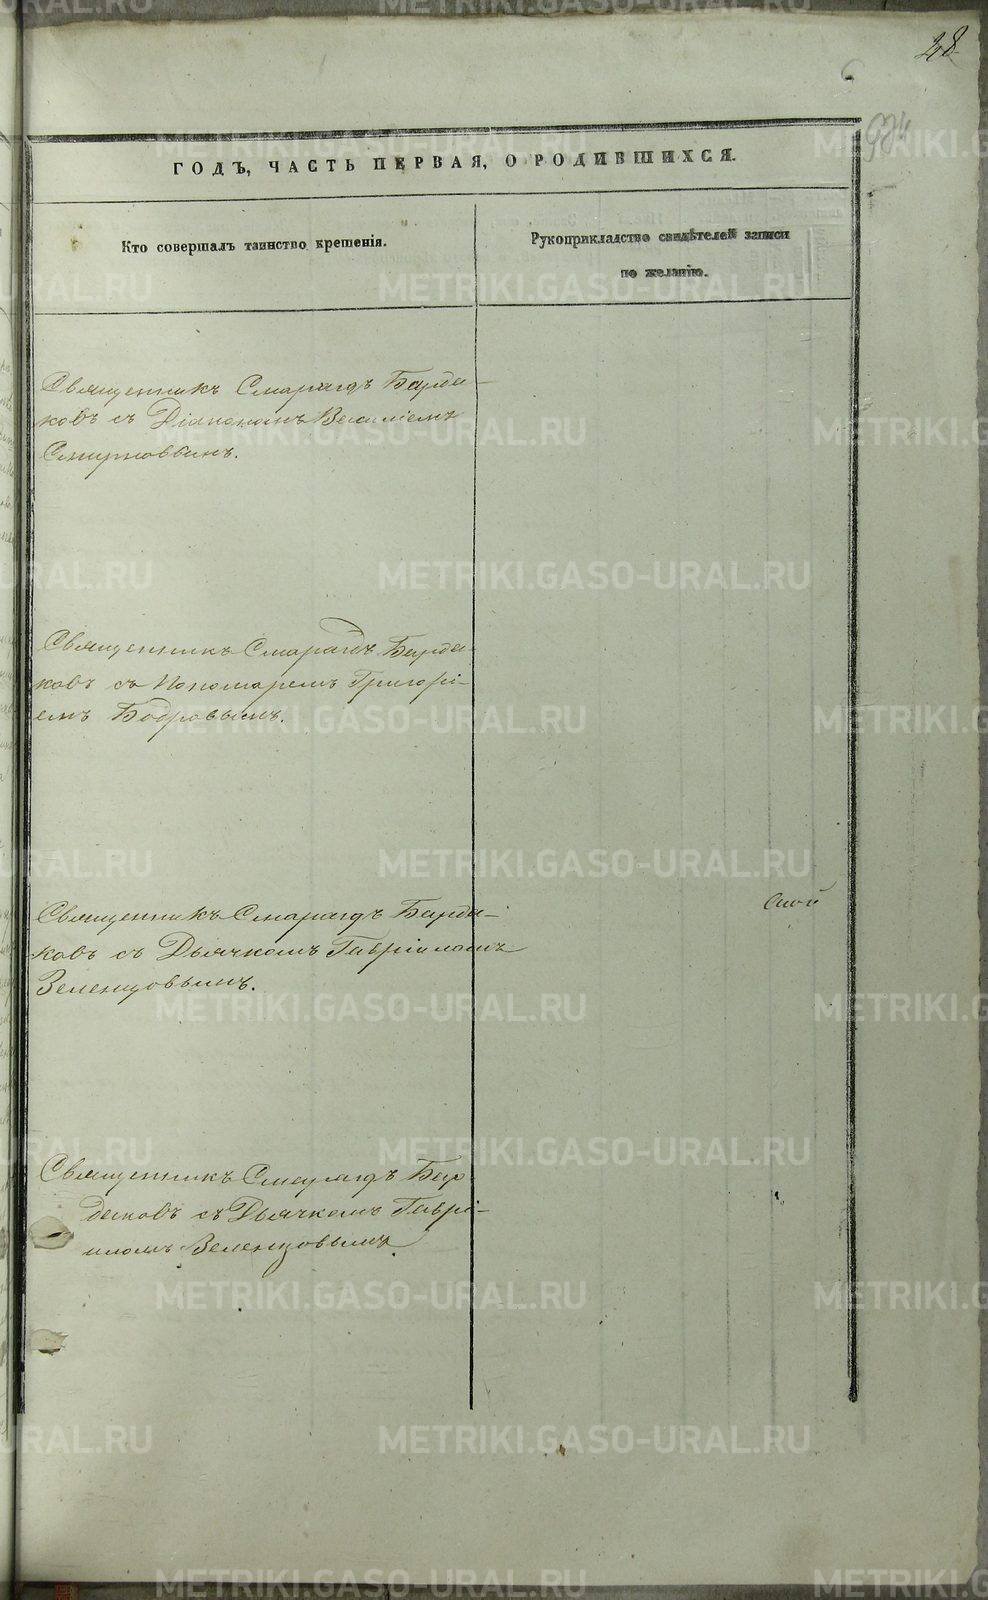 28
ГОДЪ, ЧАСТЬ ПЕРВАЯ, О РОДИВШИХСЯ.
Кто совершалъ таинство крещенія.
Рукоприкладство свидѣтелей записи
по желанію.
Священникъ Смарагдъ Барда-
ковъ съ Діакономъ Василіемъ
Смирновымъ.
Священникъ Смарагдъ Барда-
ковъ съ Пономаремъ Григорі-
емъ Бобровымъ.
Священникъ Смарагдъ Барда-
ковъ съ Дьячкомъ Гавріиломъ
Зеленцовымъ.
Священникъ Смарагдъ Бар
даковъ съ Дьячкомъ Гаврі-
иломъ Зеленцовымъ.
METRIKI.GASO-URAL.RU